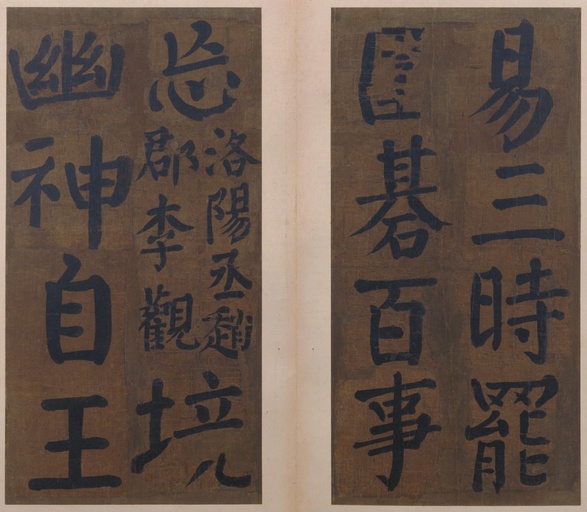 易三時罷
圍碁百事
忘
洛陽丞趙
郡李觀
境
幽神自王